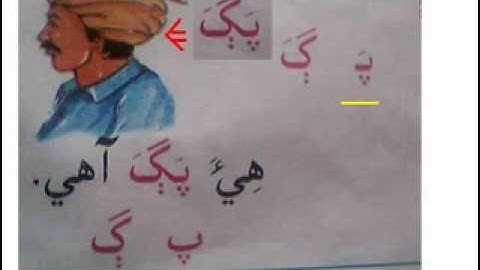 پَڳَ
پَ ڳَ
هِيءَ پَڳَ آهي.
پ ڳ